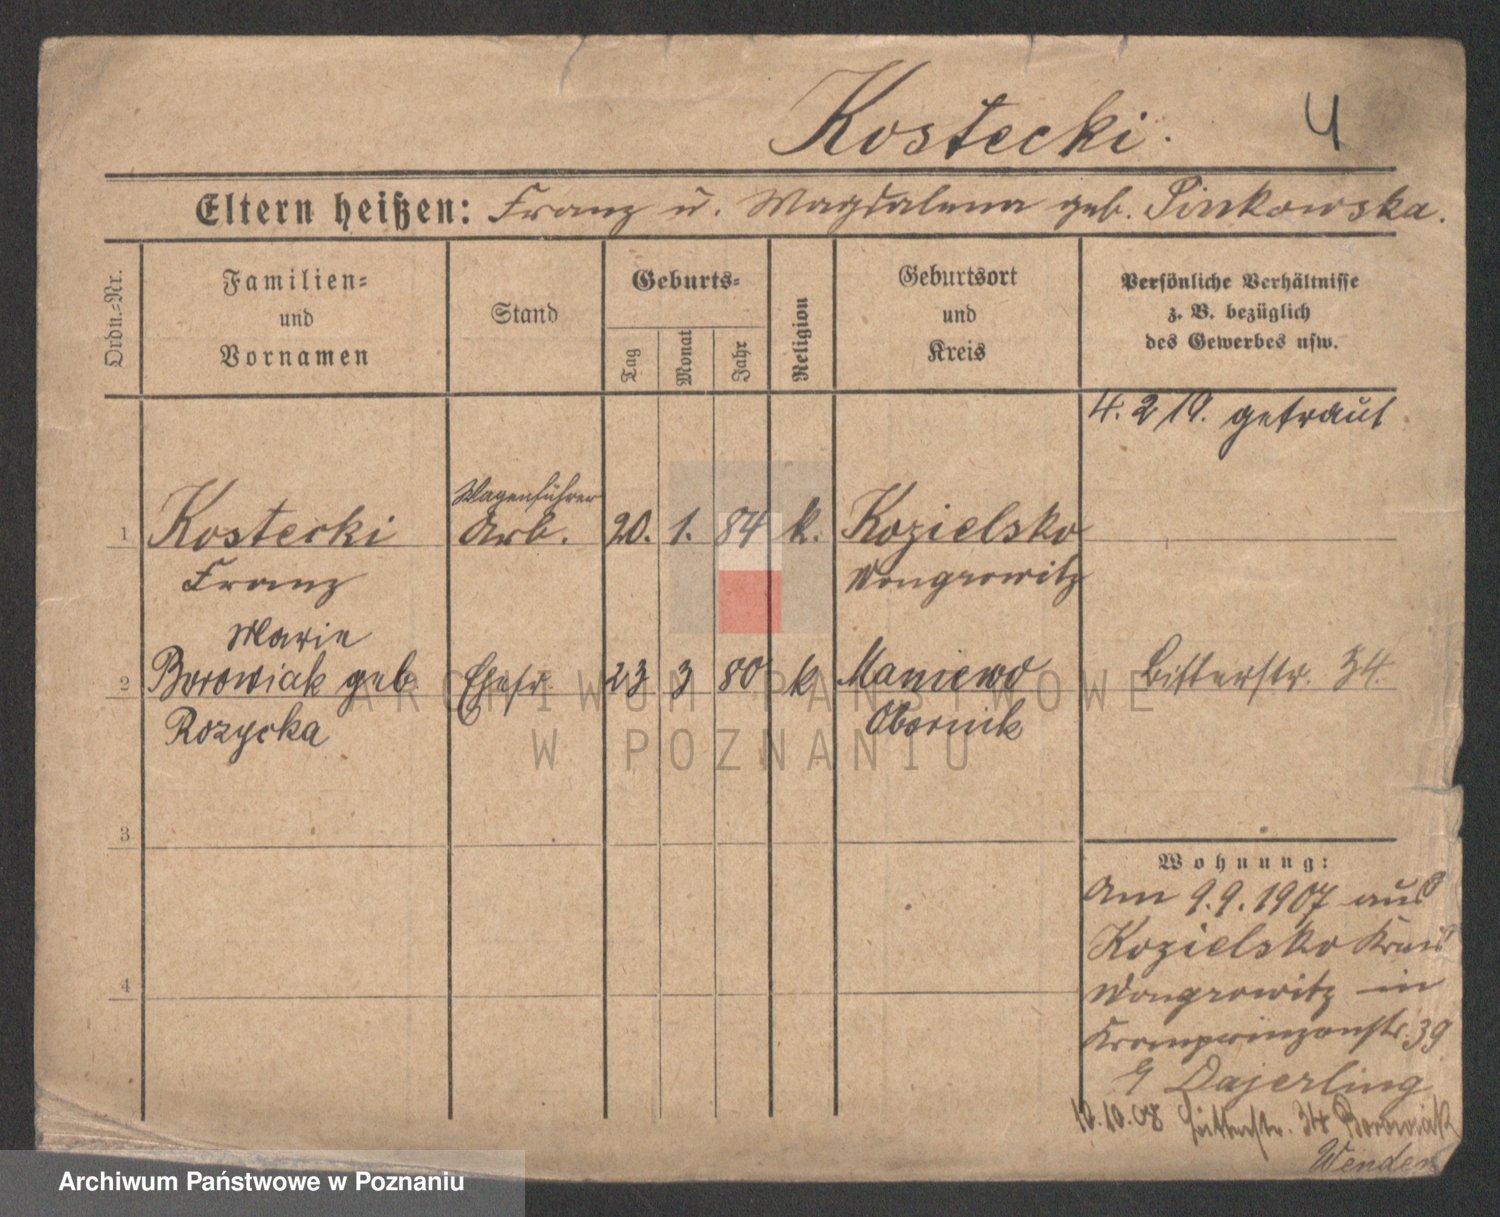 Kostecki. 4
Eltern heißen: Franz u. Magdalena geb. Pinkowska.
Ordn.-Nr.
Familien-
und
Vornamen
Stand
Geburts-
Tag
Monat
Jahr
Religion
Geburtsort
und
Kreis
Persönliche Verhältnisse
z. B. bezüglich
des Gewerbes usw.
4. 2 19. getraut
Wagenführer
1 Kostecki Arb. 20. 1. 84 k. Kozielsko
Franz Wongrowitz
Marie
2 Borowiak geb Ehefr. 23 3 80 k Maniewo Bitterstr. 34.
Rozycka Obornik
3
4
Wohnung:
Am 9.9.1907 aus
Kozielsko Kreis
Wongrowitz in
Kronprinzenstr. 39
Dajerling
10.10.08 34 Borowiak
Wenden
ARCHIWUM PAŃSTWOWE
W POZNANIU
Archiwum Państwowe w Poznaniu